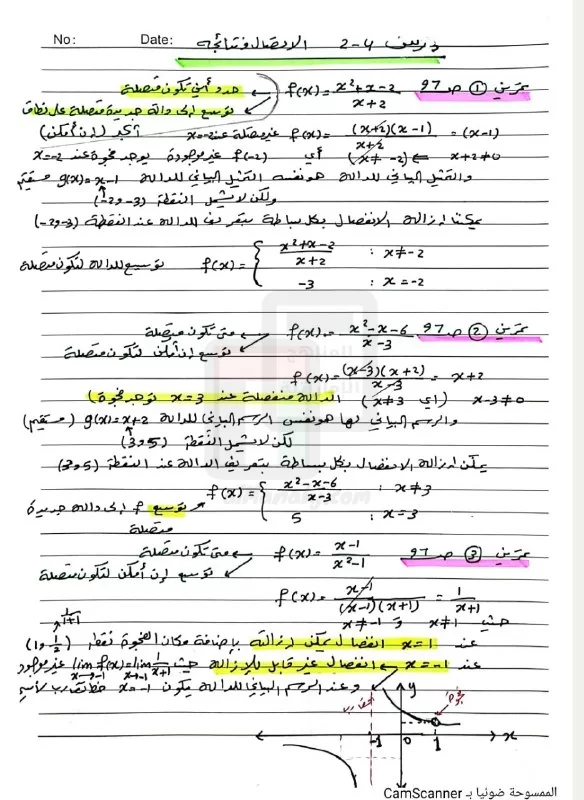 No: Date: درس 4-2 الاتصال ونتائجه
تمرين ① ص 97 f(x) = (x²+x-2)/(x+2) حدد أين تكون متصلة
توسيع إلى دالة جديدة متصلة على نطاق أكبر (إن أمكن)
f(x) = (x+2)(x-1)/(x+2) = (x-1) غير متصلة عند x=-2
x+2≠0 ⇐ (x≠-2) أي f(-2) غير موجودة يوجد فجوة عند x=-2
والتمثيل البياني للدالة هو نفسه التمثيل البياني للدالة g(x)=x-1 مستقيم
ولكن لا تشمل النقطة (-2,-3)
يمكننا إزالة الانفصال بكل بساطة بتعريف الدالة عند النقطة (-2,-3)
توسيع للدالة لتكون متصلة f(x) = { (x²+x-2)/(x+2) : x≠-2
-3 : x=-2
تمرين ② ص 97 f(x) = (x²-x-6)/(x-3) متى تكون متصلة
توسيع إن أمكن لتكون متصلة
f(x) = (x-3)(x+2)/(x-3) = x+2
x-3≠0 (أي x≠3) الدالة منفصلة عند x=3 توجد فجوة)
والرسم البياني لها هو نفس الرسم البياني للدالة g(x)=x+2 (مستقيم)
لكن لا تشمل النقطة (3,5)
يمكن إزالة الانفصال بكل بساطة بتعريف الدالة عند النقطة (3,5)
f(x) = { (x²-x-6)/(x-3) : x≠3
توسيع f إلى دالة جديدة متصلة 5 : x=3
تمرين ③ ص 97 f(x) = (x-1)/(x²-1) متى تكون متصلة
توسيع إن أمكن لتكون متصلة
f(x) = (x-1)/((x-1)(x+1)) = 1/(x+1)
حيث x≠1 و x≠-1 1/(1+1)
عند x=1 انفصال يمكن إزالته بإضافة مكان الفجوة نقطة (1, 1/2)
عند x=-1 انفصال غير قابل للإزالة حيث lim f(x) = lim 1/(x+1) غير موجود
x→-1 x→-1
وعند الرسم البياني للدالة يكون x=-1 خط تقارب رأسي
y
-1 0 1 x
الممسوحة ضوئيا بـ CamScanner